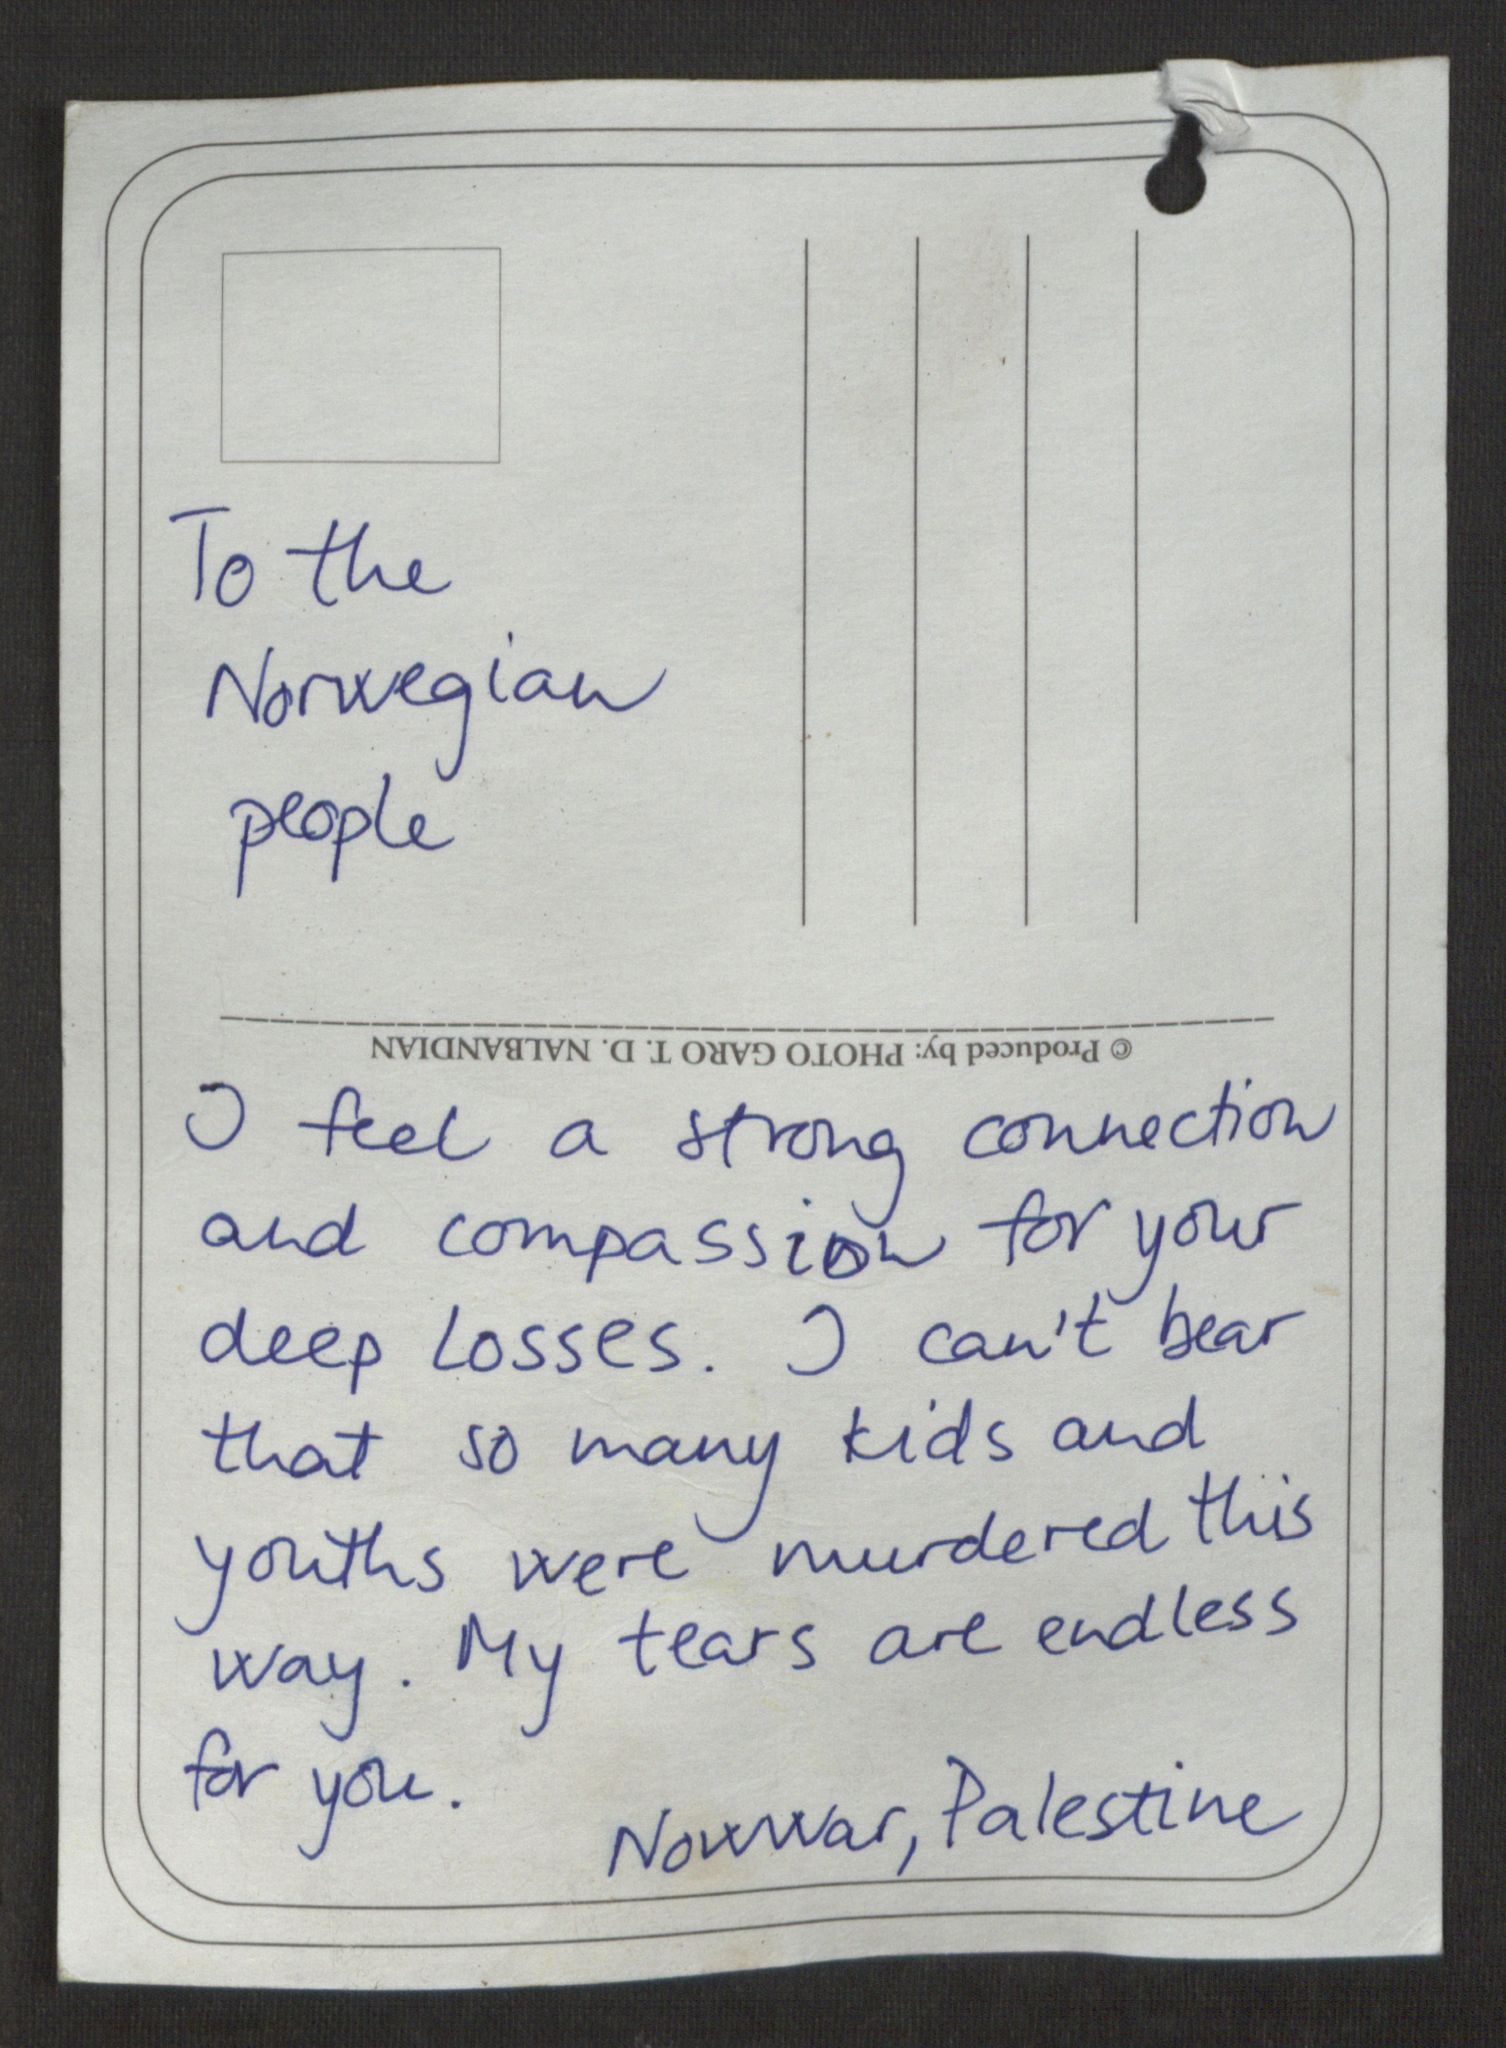 To the
Norwegian
people
© Produced by: PHOTO GARO T. D. NALBANDIAN
I feel a strong connection
and compassion for your
deep losses. I can't bear
that so many kids and
youths were murdered this
way. My tears are endless
for you.
Nowwar, Palestine